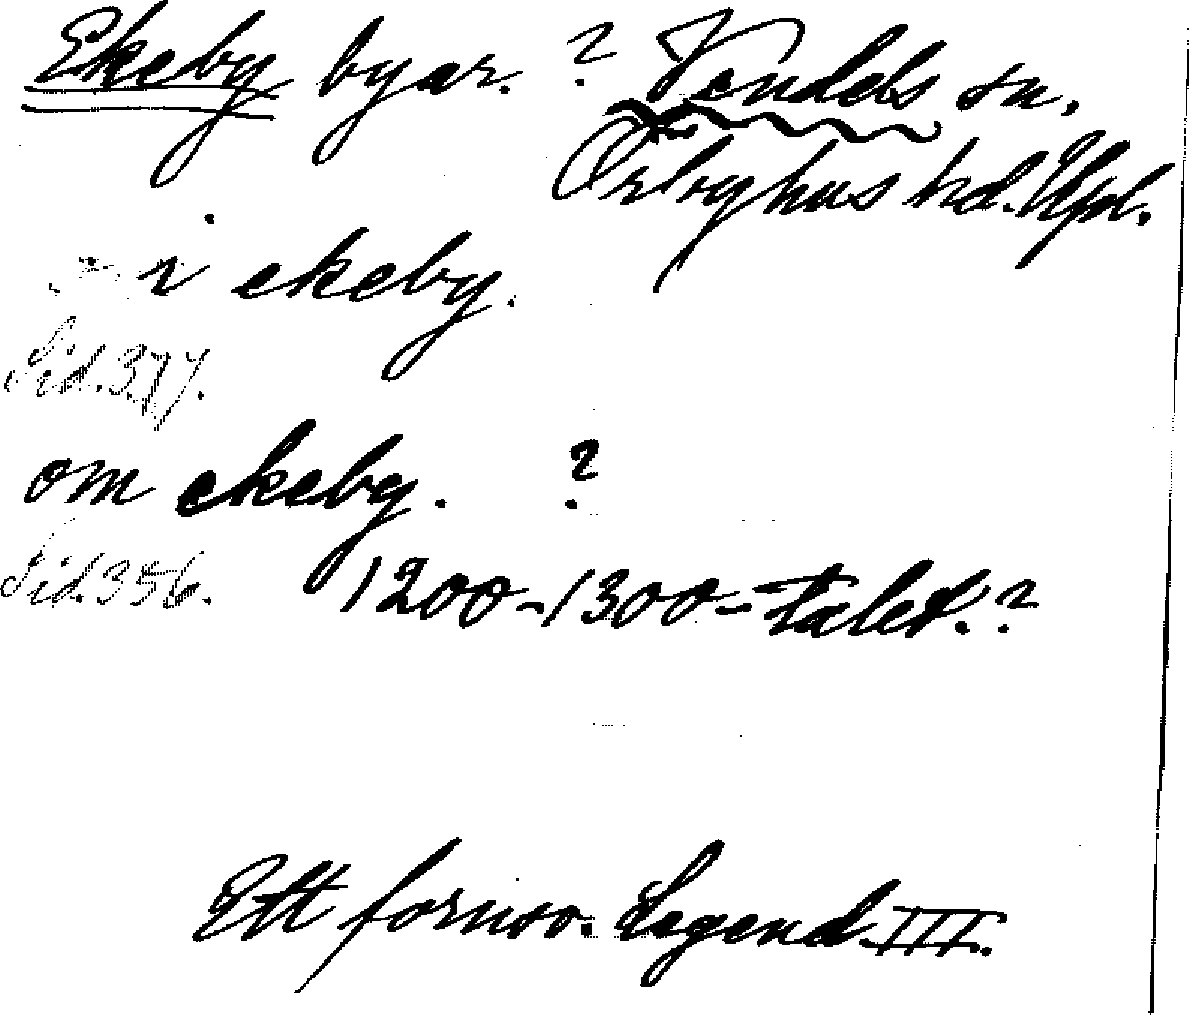 Ekeby byar. ? Vendels sn.
Örbyhus hd. Upl.
i ekeby.
Sid. 377.
om ekeby. ?
Sid. 356. 1200-1300-talet.?
Ett fornsv. Legend. III.